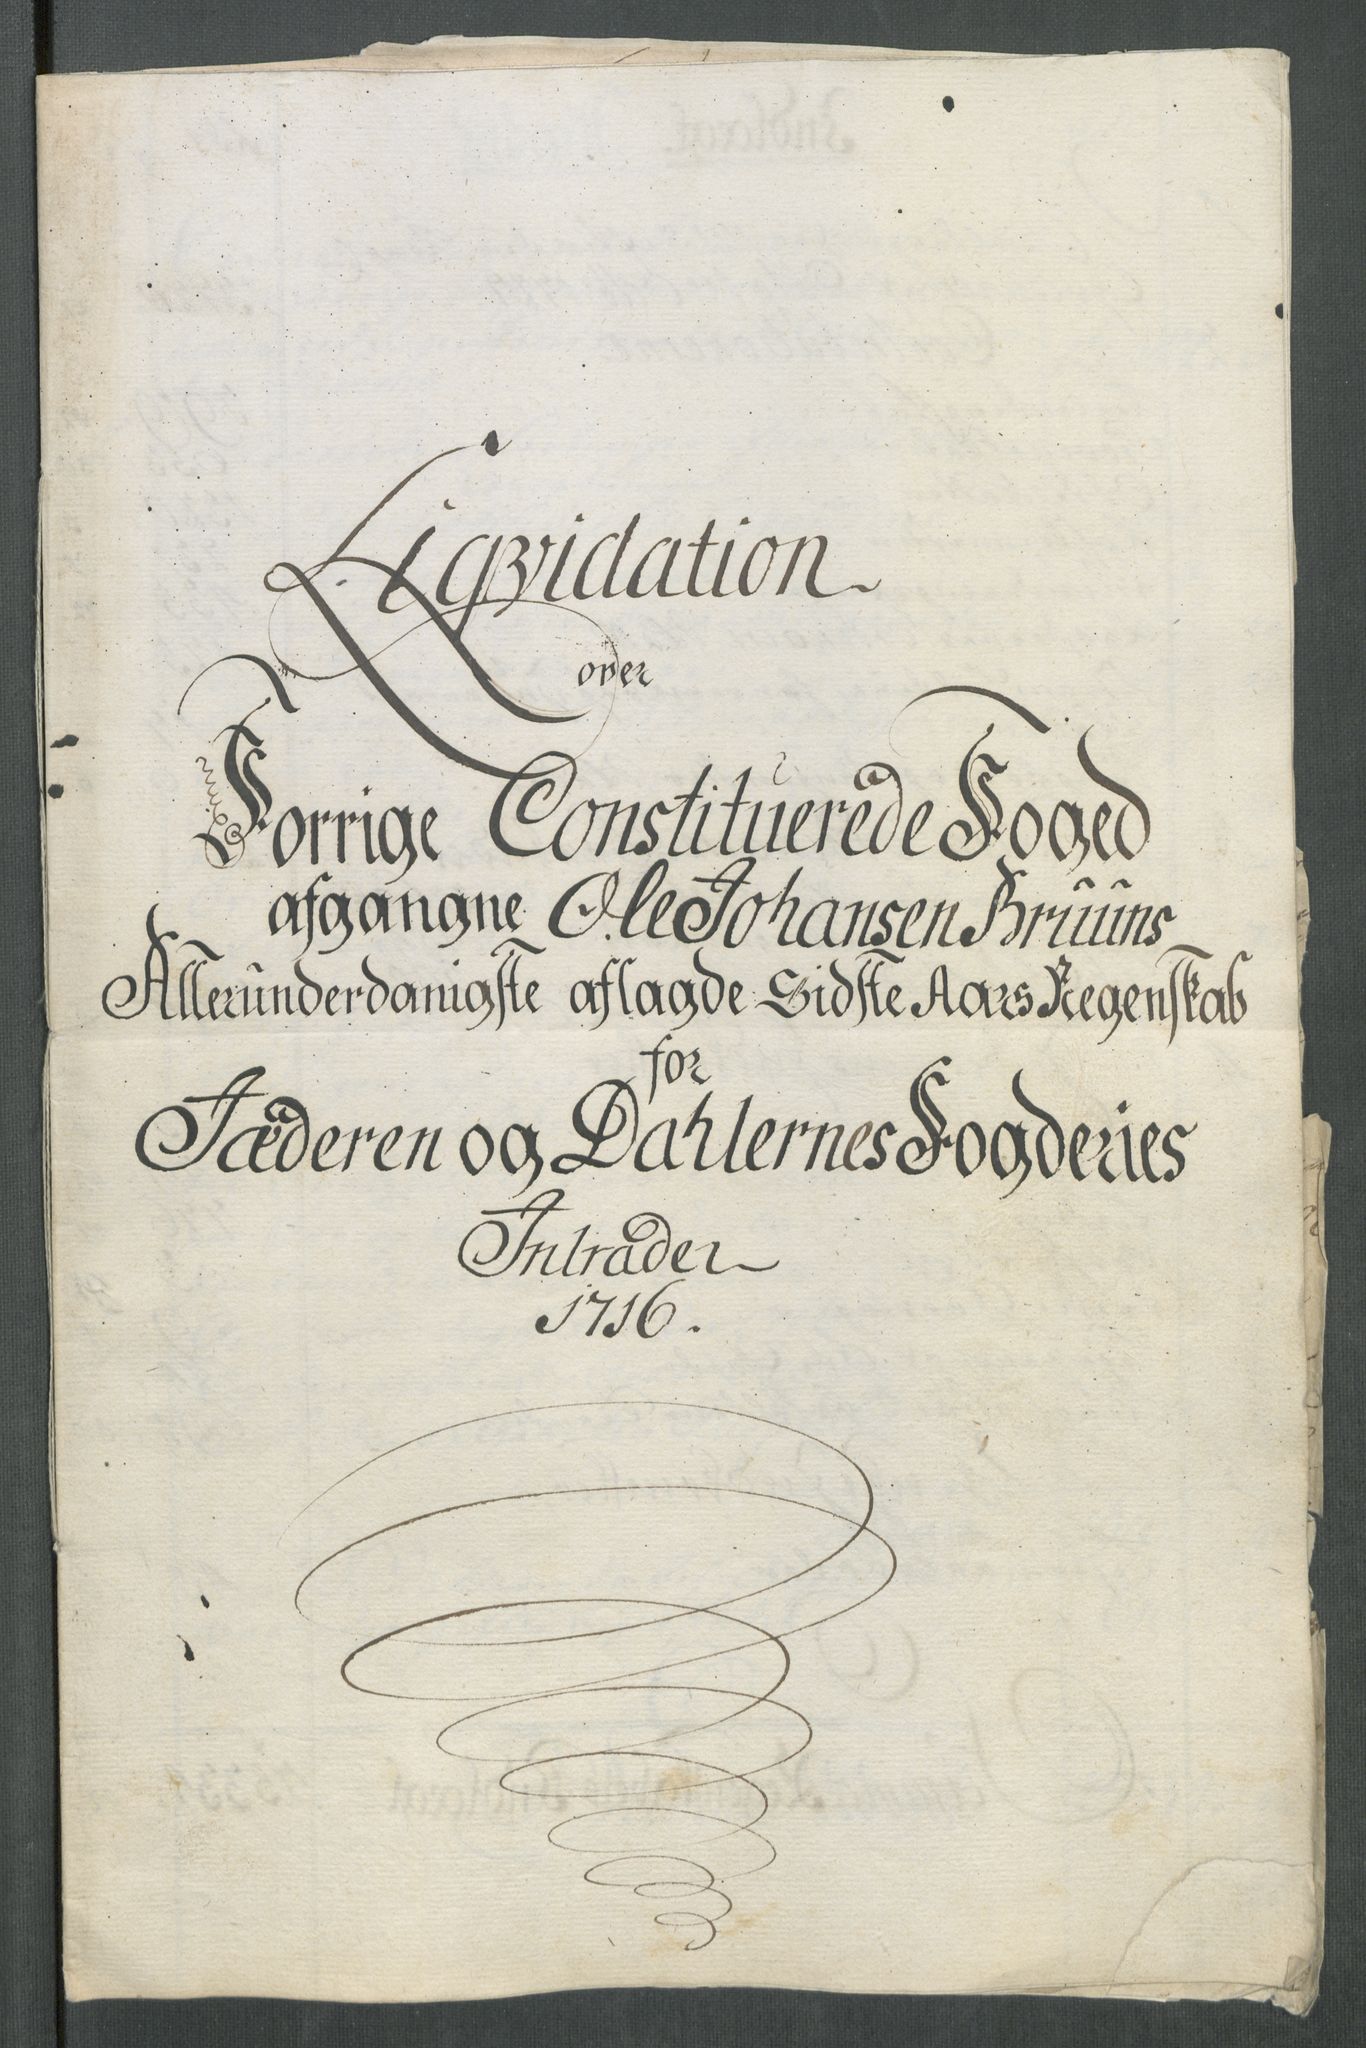 Liqvidation
over
Forrige Constituerede Foged
afgangne Ole Johansen Bruuns
Allerunderdanigste aflagde Sidste Aars Regenskab
for
Jæderen og Dahlernes Fogderies
Intrader
1716.